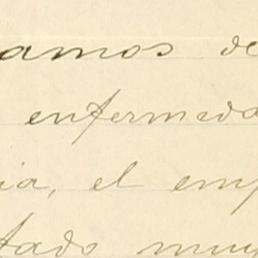 amos de
enfermeda
ia, el emp
tado muy